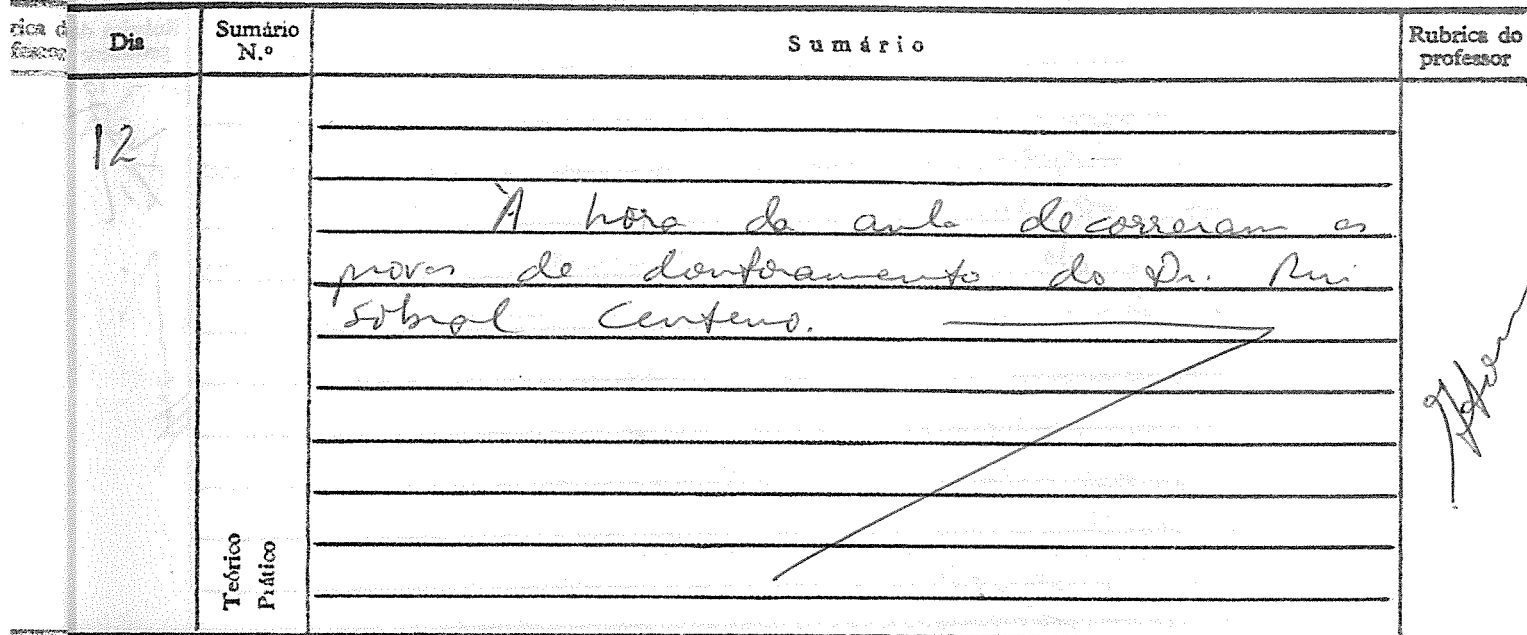 Dia
Sumário N.º
Sumário
Rubrica do professor
12
À hora da aula decorreram as
provas de doutoramento do Dr. Rui
Sobral Centeno.
Teórico
Prático